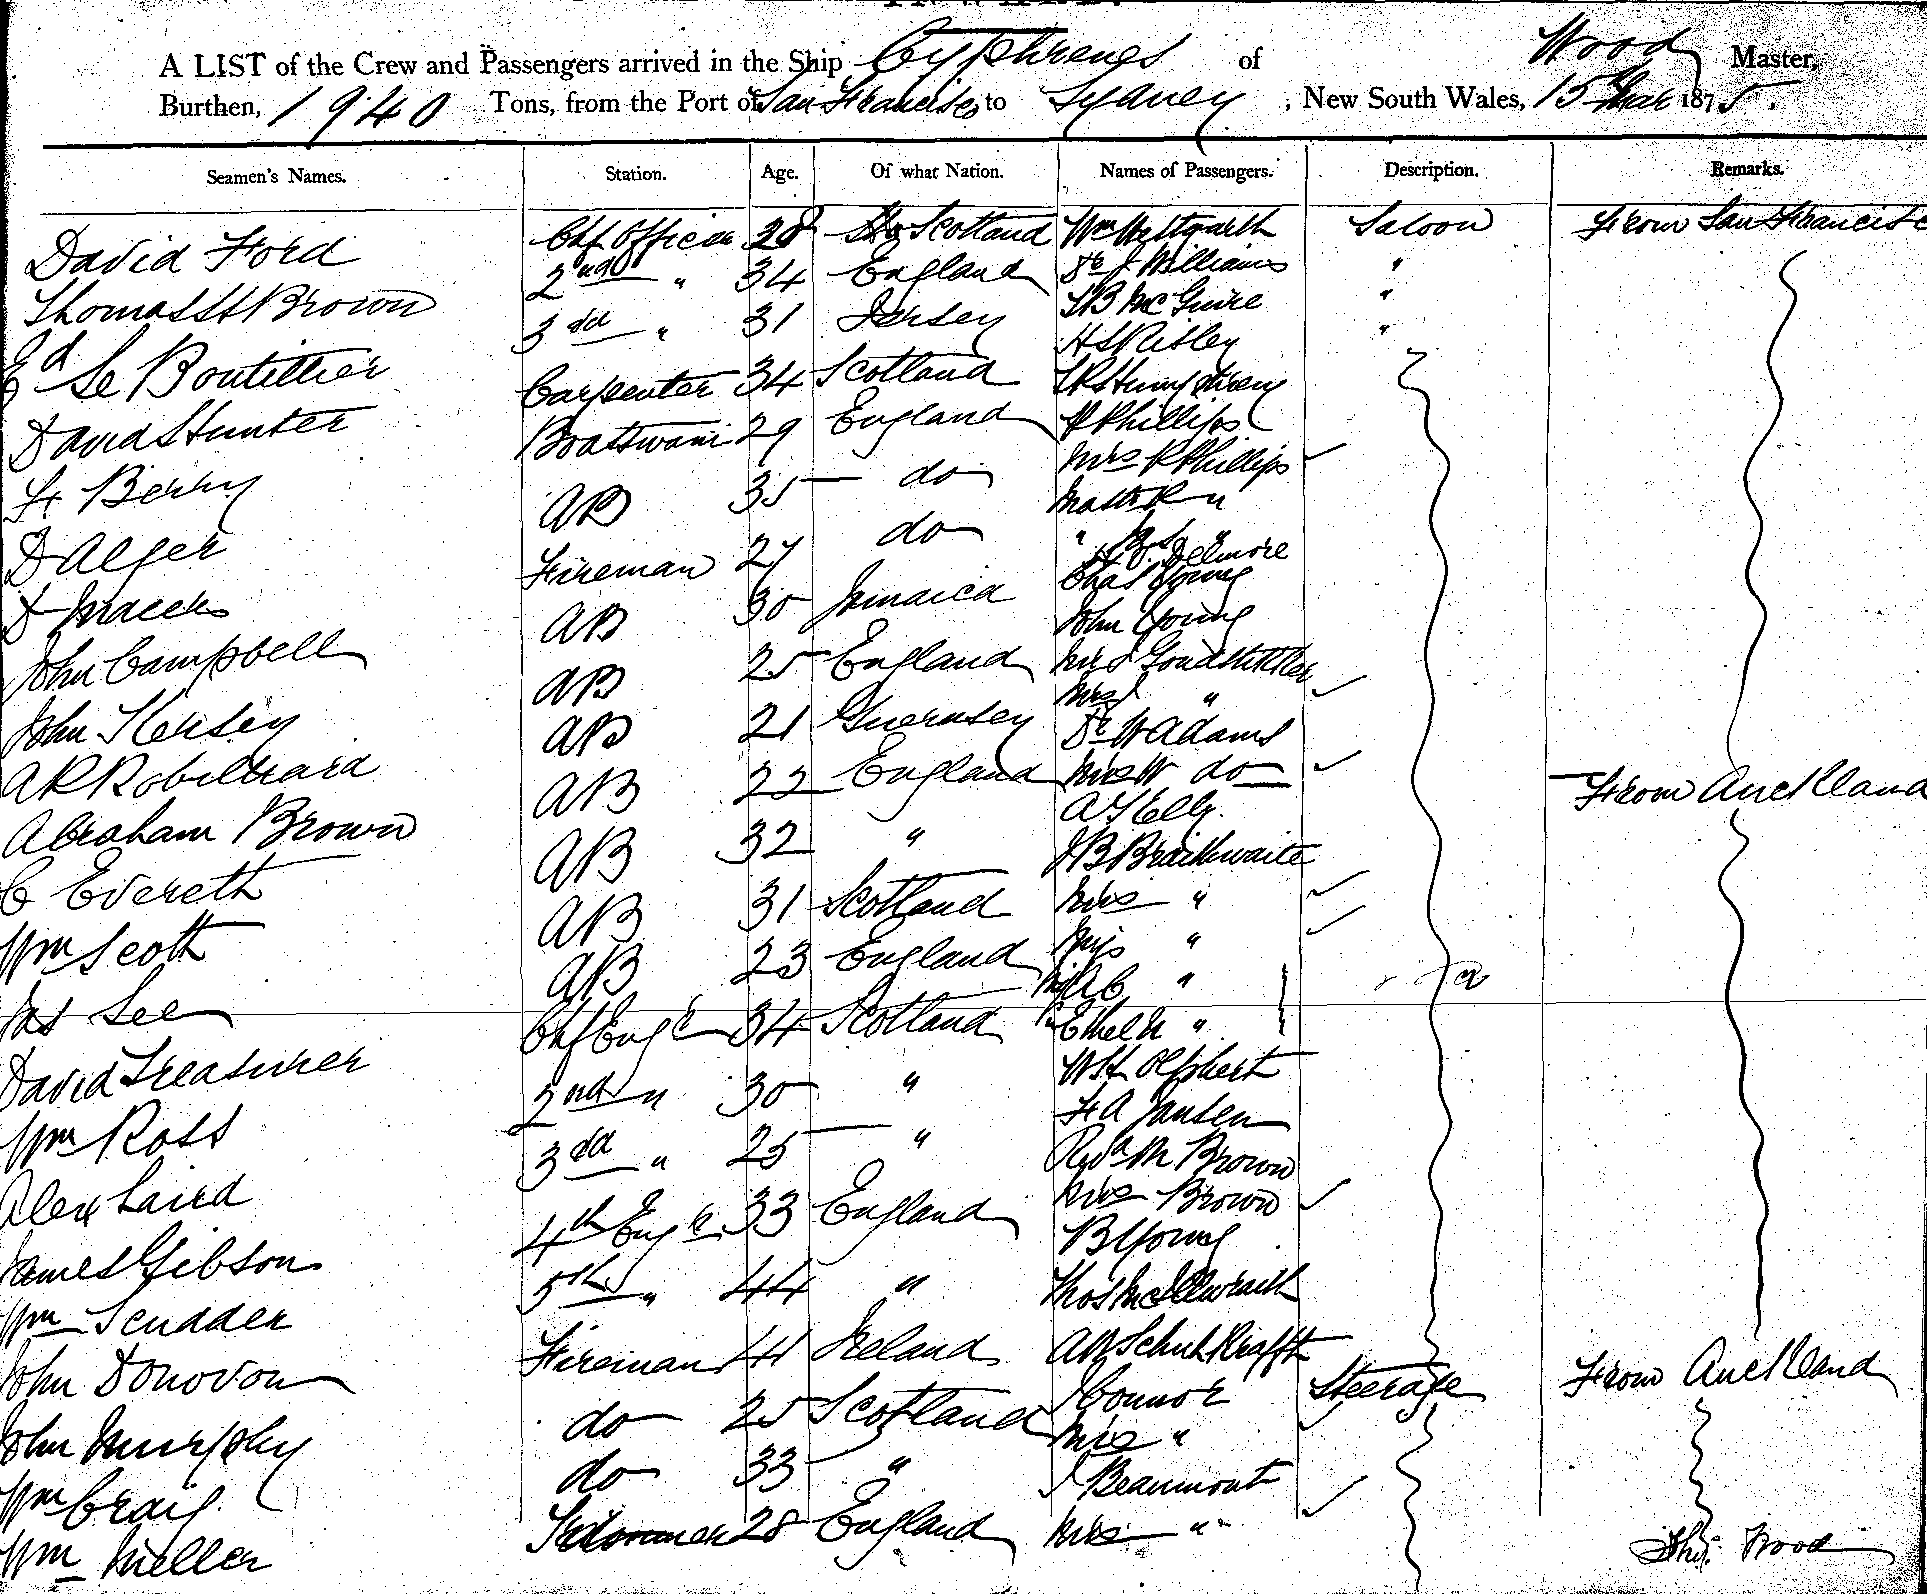 A LIST of the Crew and Passengers arrived in the Ship Cyphrenes of Wood Master,
Burthen, 1940 Tons, from the Port of San Francisco to Sydney, New South Wales, 15 Mar 1875.
Seamen's Names. Station. Age. Of what Nation. Names of Passengers. Description. Remarks.
David Ford Chf Officer 28 Scotland Wm Westgarth Saloon From San Francisco
Thomas H Brown 2nd " 34 England Dr J Williams "
Ed Le Boutillier 3rd " 31 Jersey McGuire "
H S Risley "
David Hunter Carpenter 34 Scotland Humphrey
F Berry Boatswain 29 England R Phillips
Mrs R Phillips
D Alger AB 35 do Mastr R "
" "
Fireman 27 do Delmore
Chas Young
John Campbell AB 30 Jamaica John Young
John Hersey AB 25 England
Mrs "
A R Robilliard AB 21 Guernsey Dr W Adams
Abraham Brown AB 22 England Mrs W do From Auckland
A Kelly
C Evereth AB 32 " J B Braithwaite
Wm Scott AB 31 Scotland Mrs "
Jas Lee AB 23 England Miss "
A C "
David Treasurer Chf Engr 34 Scotland Ethel "
Wm Ross 2nd " 30 " W H Olphert
F A Jansen
Alex Laird 3rd " 25 " Revd M Brown
James Gibson 4th Engr 33 England Mrs Brown
B Young
Wm Scudder 5th " 44 " Thos McIlwraith
John Donovon Fireman 41 Ireland A W Schuhkrafft
John Murphy do 25 Scotland J Connor Steerage From Auckland
Mrs "
Wm Craig do 33 " J Beaumont
Wm Meller 28 England Mrs " Wood